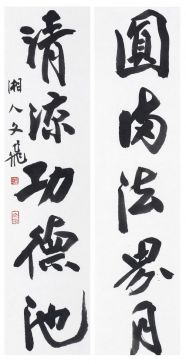 圓滿法界月
清凉功德池
湘人文飛